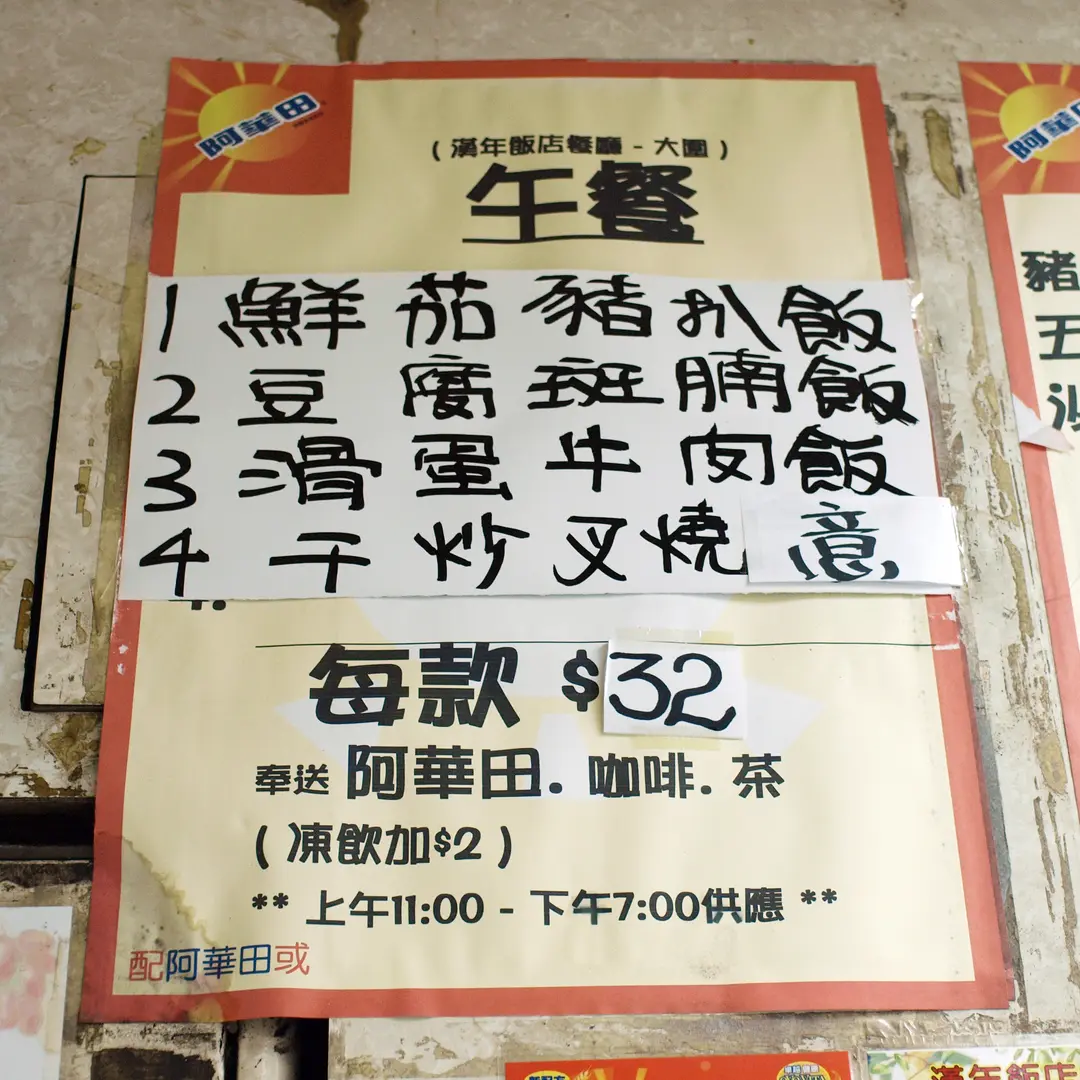 阿華田
(漢年飯店餐廳 - 大圍)
午餐
1 鮮茄豬扒飯
2 豆腐斑腩飯
3 滑蛋牛肉飯
4 干炒叉燒意
每款 $32
奉送 阿華田. 咖啡. 茶
(凍飲加$2)
** 上午11:00 - 下午7:00供應 **
配阿華田或
阿華田
豬
五
沙
漢年飯店